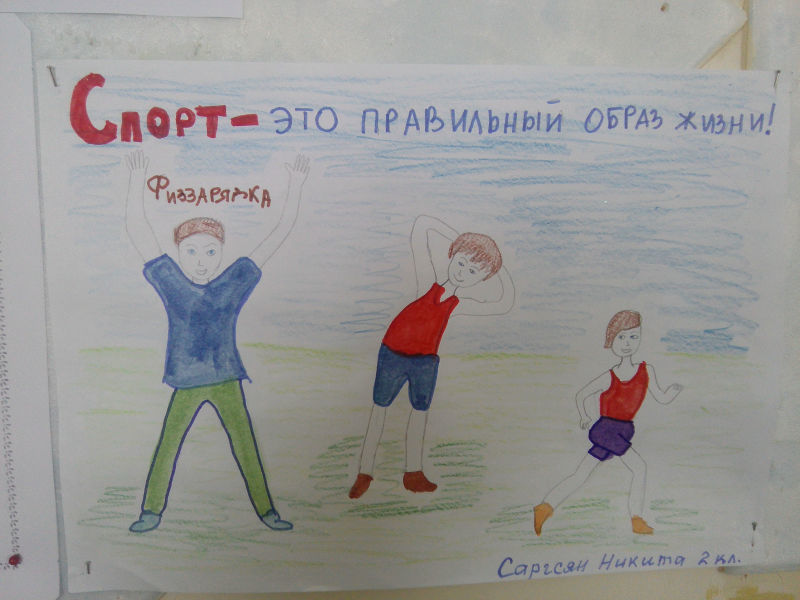 Спорт- это правильный образ жизни!
Физзарядка
Саргсян Никита 2 кл.